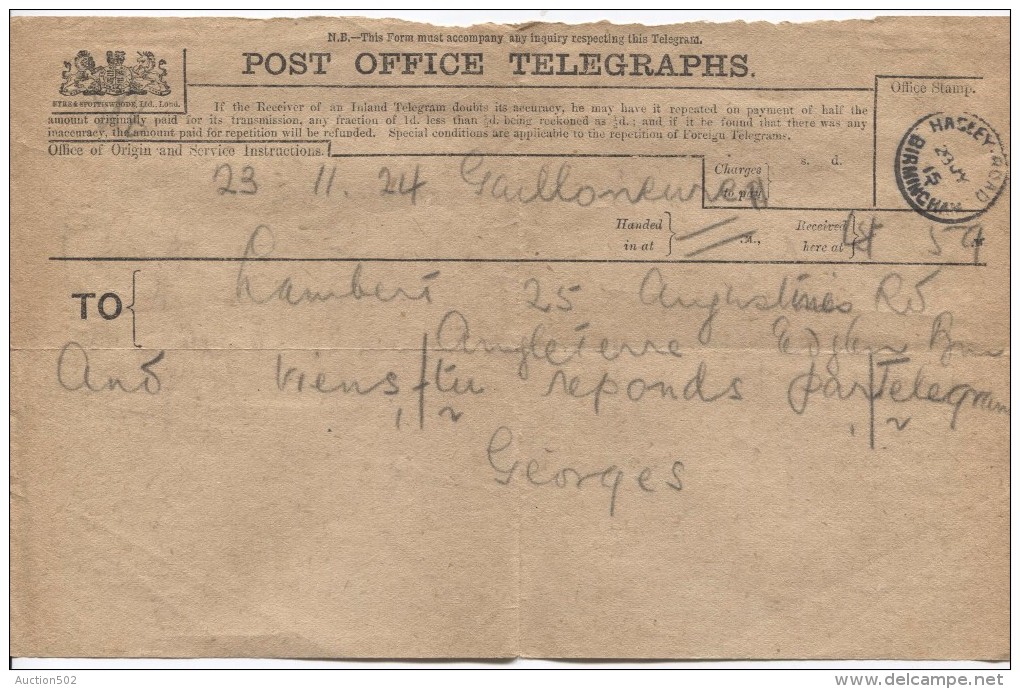 N.B.—This Form must accompany any inquiry respecting this Telegram.
POST OFFICE TELEGRAPHS.
EYRE & SPOTTISWOODE, Ltd., Lond.
Office Stamp.
If the Receiver of an Inland Telegram doubts its accuracy, he may have it repeated on payment of half the
amount originally paid for its transmission, any fraction of 1d. less than ½d. being reckoned as ½d.; and if it be found that there was any
inaccuracy, the amount paid for repetition will be refunded. Special conditions are applicable to the repetition of Foreign Telegrams.
HAGLEY ROAD
23 JY
15
BIRMINGHAM
Office of Origin and Service Instructions.
Charges
to pay
s. d.
23 11.24
Handed
in at
M.,
Received
here at
54
TO
Lambert 25 Augustines Rd
Angleterre
And viens, tu reponds par Telegram
Georges
Auction502